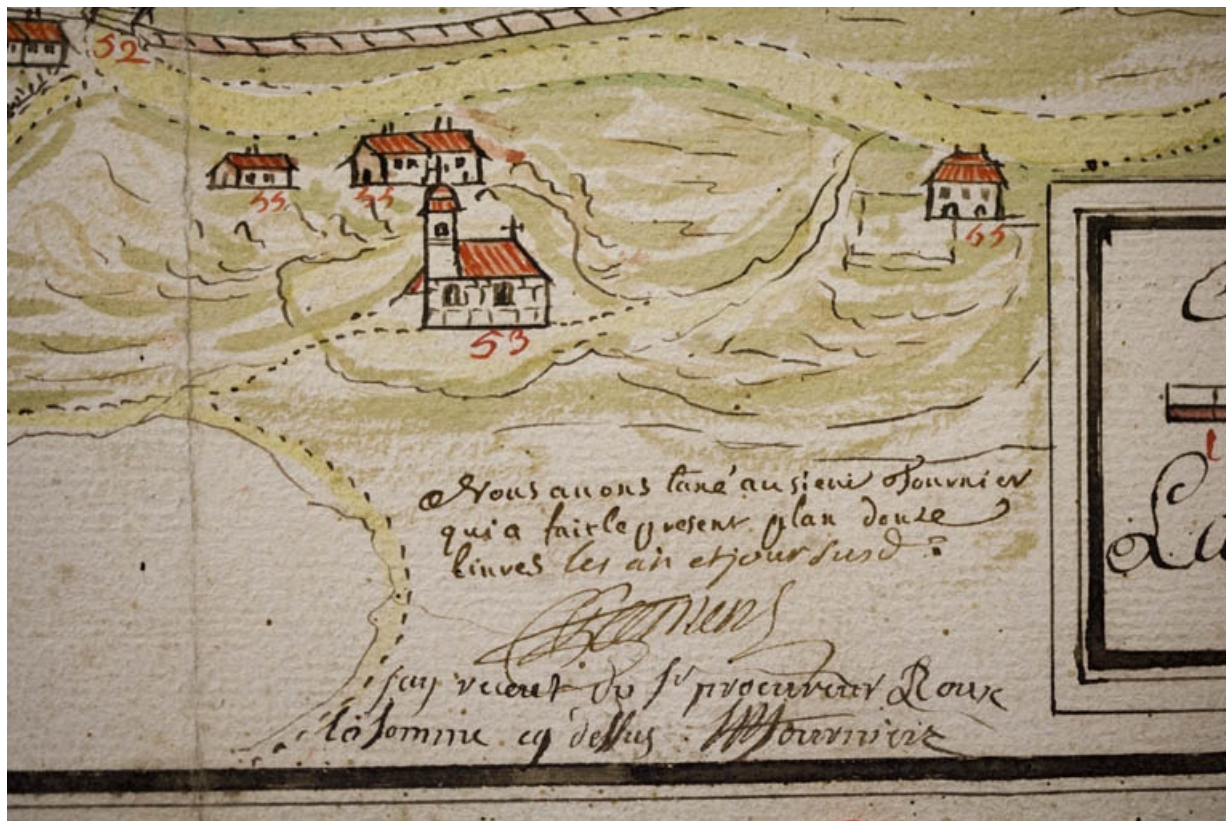 52
55
55
55
53
Nous auons taxé au sieur Fournier
qui a fait le present plan douze
liures les an et jour susd
Clemens
jay receut du Sr procureur Roux
la somme cy dessus Fournier
1
La